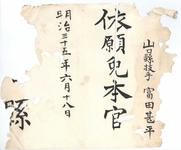 山口縣技手 富田甚平
依願免本官
明治三十五年六月十八日
縣